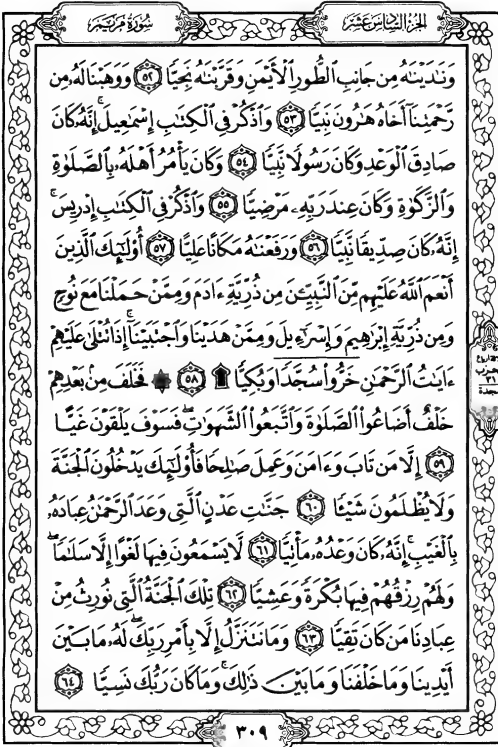 الجزء السادس عشر
سورة مريم
وَنَٰدَيْنَٰهُ مِن جَانِبِ ٱلطُّورِ ٱلْأَيْمَنِ وَقَرَّبْنَٰهُ نَجِيًّا ٥٢ وَوَهَبْنَا لَهُۥ مِن
رَّحْمَتِنَآ أَخَاهُ هَٰرُونَ نَبِيًّا ٥٣ وَٱذْكُرْ فِي ٱلْكِتَٰبِ إِسْمَٰعِيلَ ۚ إِنَّهُۥ كَانَ
صَادِقَ ٱلْوَعْدِ وَكَانَ رَسُولًا نَّبِيًّا ٥٤ وَكَانَ يَأْمُرُ أَهْلَهُۥ بِٱلصَّلَوٰةِ
وَٱلزَّكَوٰةِ وَكَانَ عِندَ رَبِّهِۦ مَرْضِيًّا ٥٥ وَٱذْكُرْ فِي ٱلْكِتَٰبِ إِدْرِيسَ ۚ
إِنَّهُۥ كَانَ صِدِّيقًا نَّبِيًّا ٥٦ وَرَفَعْنَٰهُ مَكَانًا عَلِيًّا ٥٧ أُو۟لَٰٓئِكَ ٱلَّذِينَ
أَنْعَمَ ٱللَّهُ عَلَيْهِم مِّنَ ٱلنَّبِيِّـۧنَ مِن ذُرِّيَّةِ ءَادَمَ وَمِمَّنْ حَمَلْنَا مَعَ نُوحٍ
وَمِن ذُرِّيَّةِ إِبْرَٰهِيمَ وَإِسْرَٰٓءِيلَ وَمِمَّنْ هَدَيْنَا وَٱجْتَبَيْنَآ ۚ إِذَا تُتْلَىٰ عَلَيْهِمْ
ءَايَٰتُ ٱلرَّحْمَٰنِ خَرُّوا۟ سُجَّدًا وَبُكِيًّا ۩ ٥٨ ۞ فَخَلَفَ مِنۢ بَعْدِهِمْ
خَلْفٌ أَضَاعُوا۟ ٱلصَّلَوٰةَ وَٱتَّبَعُوا۟ ٱلشَّهَوَٰتِ ۖ فَسَوْفَ يَلْقَوْنَ غَيًّا
٥٩ إِلَّا مَن تَابَ وَءَامَنَ وَعَمِلَ صَٰلِحًا فَأُو۟لَٰٓئِكَ يَدْخُلُونَ ٱلْجَنَّةَ
وَلَا يُظْلَمُونَ شَيْـًٔا ٦٠ جَنَّٰتِ عَدْنٍ ٱلَّتِي وَعَدَ ٱلرَّحْمَٰنُ عِبَادَهُۥ
بِٱلْغَيْبِ ۚ إِنَّهُۥ كَانَ وَعْدُهُۥ مَأْتِيًّا ٦١ لَّا يَسْمَعُونَ فِيهَا لَغْوًا إِلَّا سَلَٰمًا ۖ
وَلَهُمْ رِزْقُهُمْ فِيهَا بُكْرَةً وَعَشِيًّا ٦٢ تِلْكَ ٱلْجَنَّةُ ٱلَّتِي نُورِثُ مِنْ
عِبَادِنَا مَن كَانَ تَقِيًّا ٦٣ وَمَا نَتَنَزَّلُ إِلَّا بِأَمْرِ رَبِّكَ ۖ لَهُۥ مَا بَيْنَ
أَيْدِينَا وَمَا خَلْفَنَا وَمَا بَيْنَ ذَٰلِكَ ۚ وَمَا كَانَ رَبُّكَ نَسِيًّا ٦٤
٣١
سجدة
٣٠٩